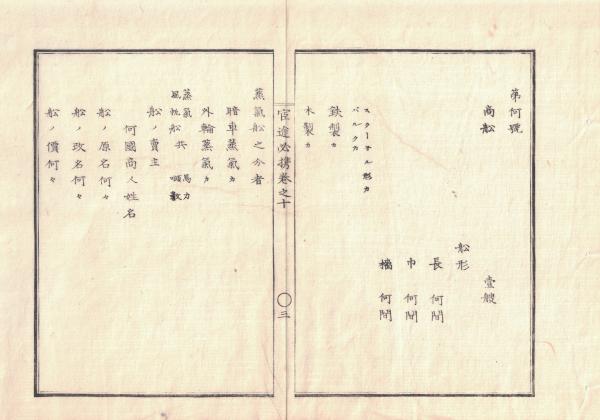 第何號
商舩 壹艘
舩形
長 何間
巾 何間
檣 何間
スクーネル形カ
バルクカ
鉄製カ
木製カ
官途必携巻之十 〇三
蒸氣舩之分者
暗車蒸氣カ
外輪蒸氣カ
蒸氣 馬力
風帆舩共 噸数
舩ノ賣主
何國商人姓名
舩ノ原名何々
舩ノ改名何々
舩ノ價何々